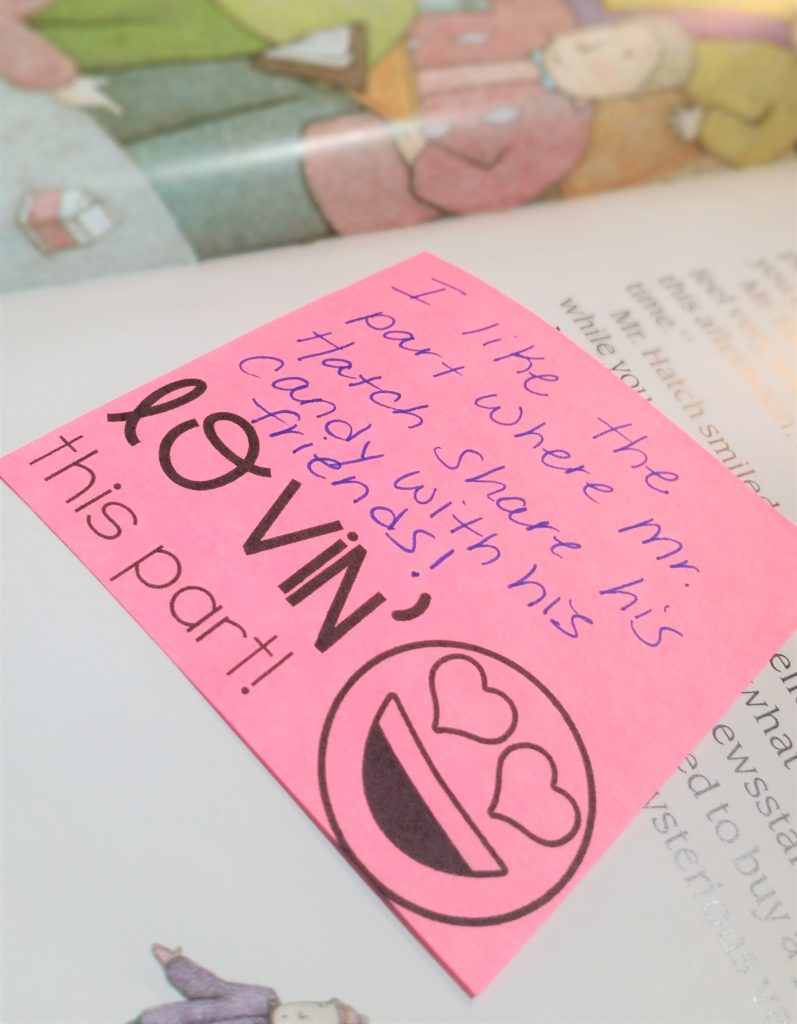 I like the
part where mr.
Hatch share his
candy with his
friends!
lOViN'
this part!
this afternoon,
time."
Mr. Hatch smiled
while you
what
to buy a